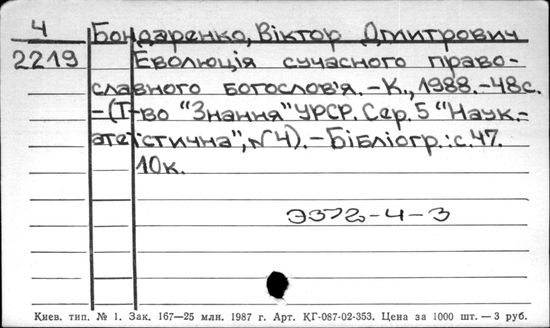 4 Бондаренко, Віктор Дмитрович
2219 Еволюція сучасного право-
славного богослов'я. – К., 1988. – 48с.
– (Т-во "Знання" УРСР. Сер. 5 "Наук.-
атеїстична", №4). – Бібліогр.: с.47.
10к.
Э372-4-3
Киев. тип. № 1. Зак. 167—25 млн. 1987 г. Арт. КГ-087-02-353. Цена за 1000 шт. — 3 руб.